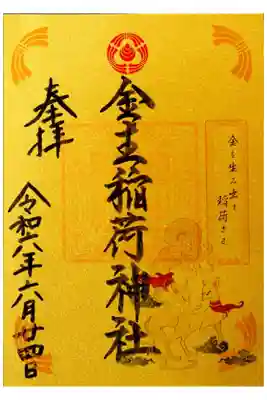 金を生み出す稲荷さま
金主稲荷神社
奉拝
令和六年六月廿四日